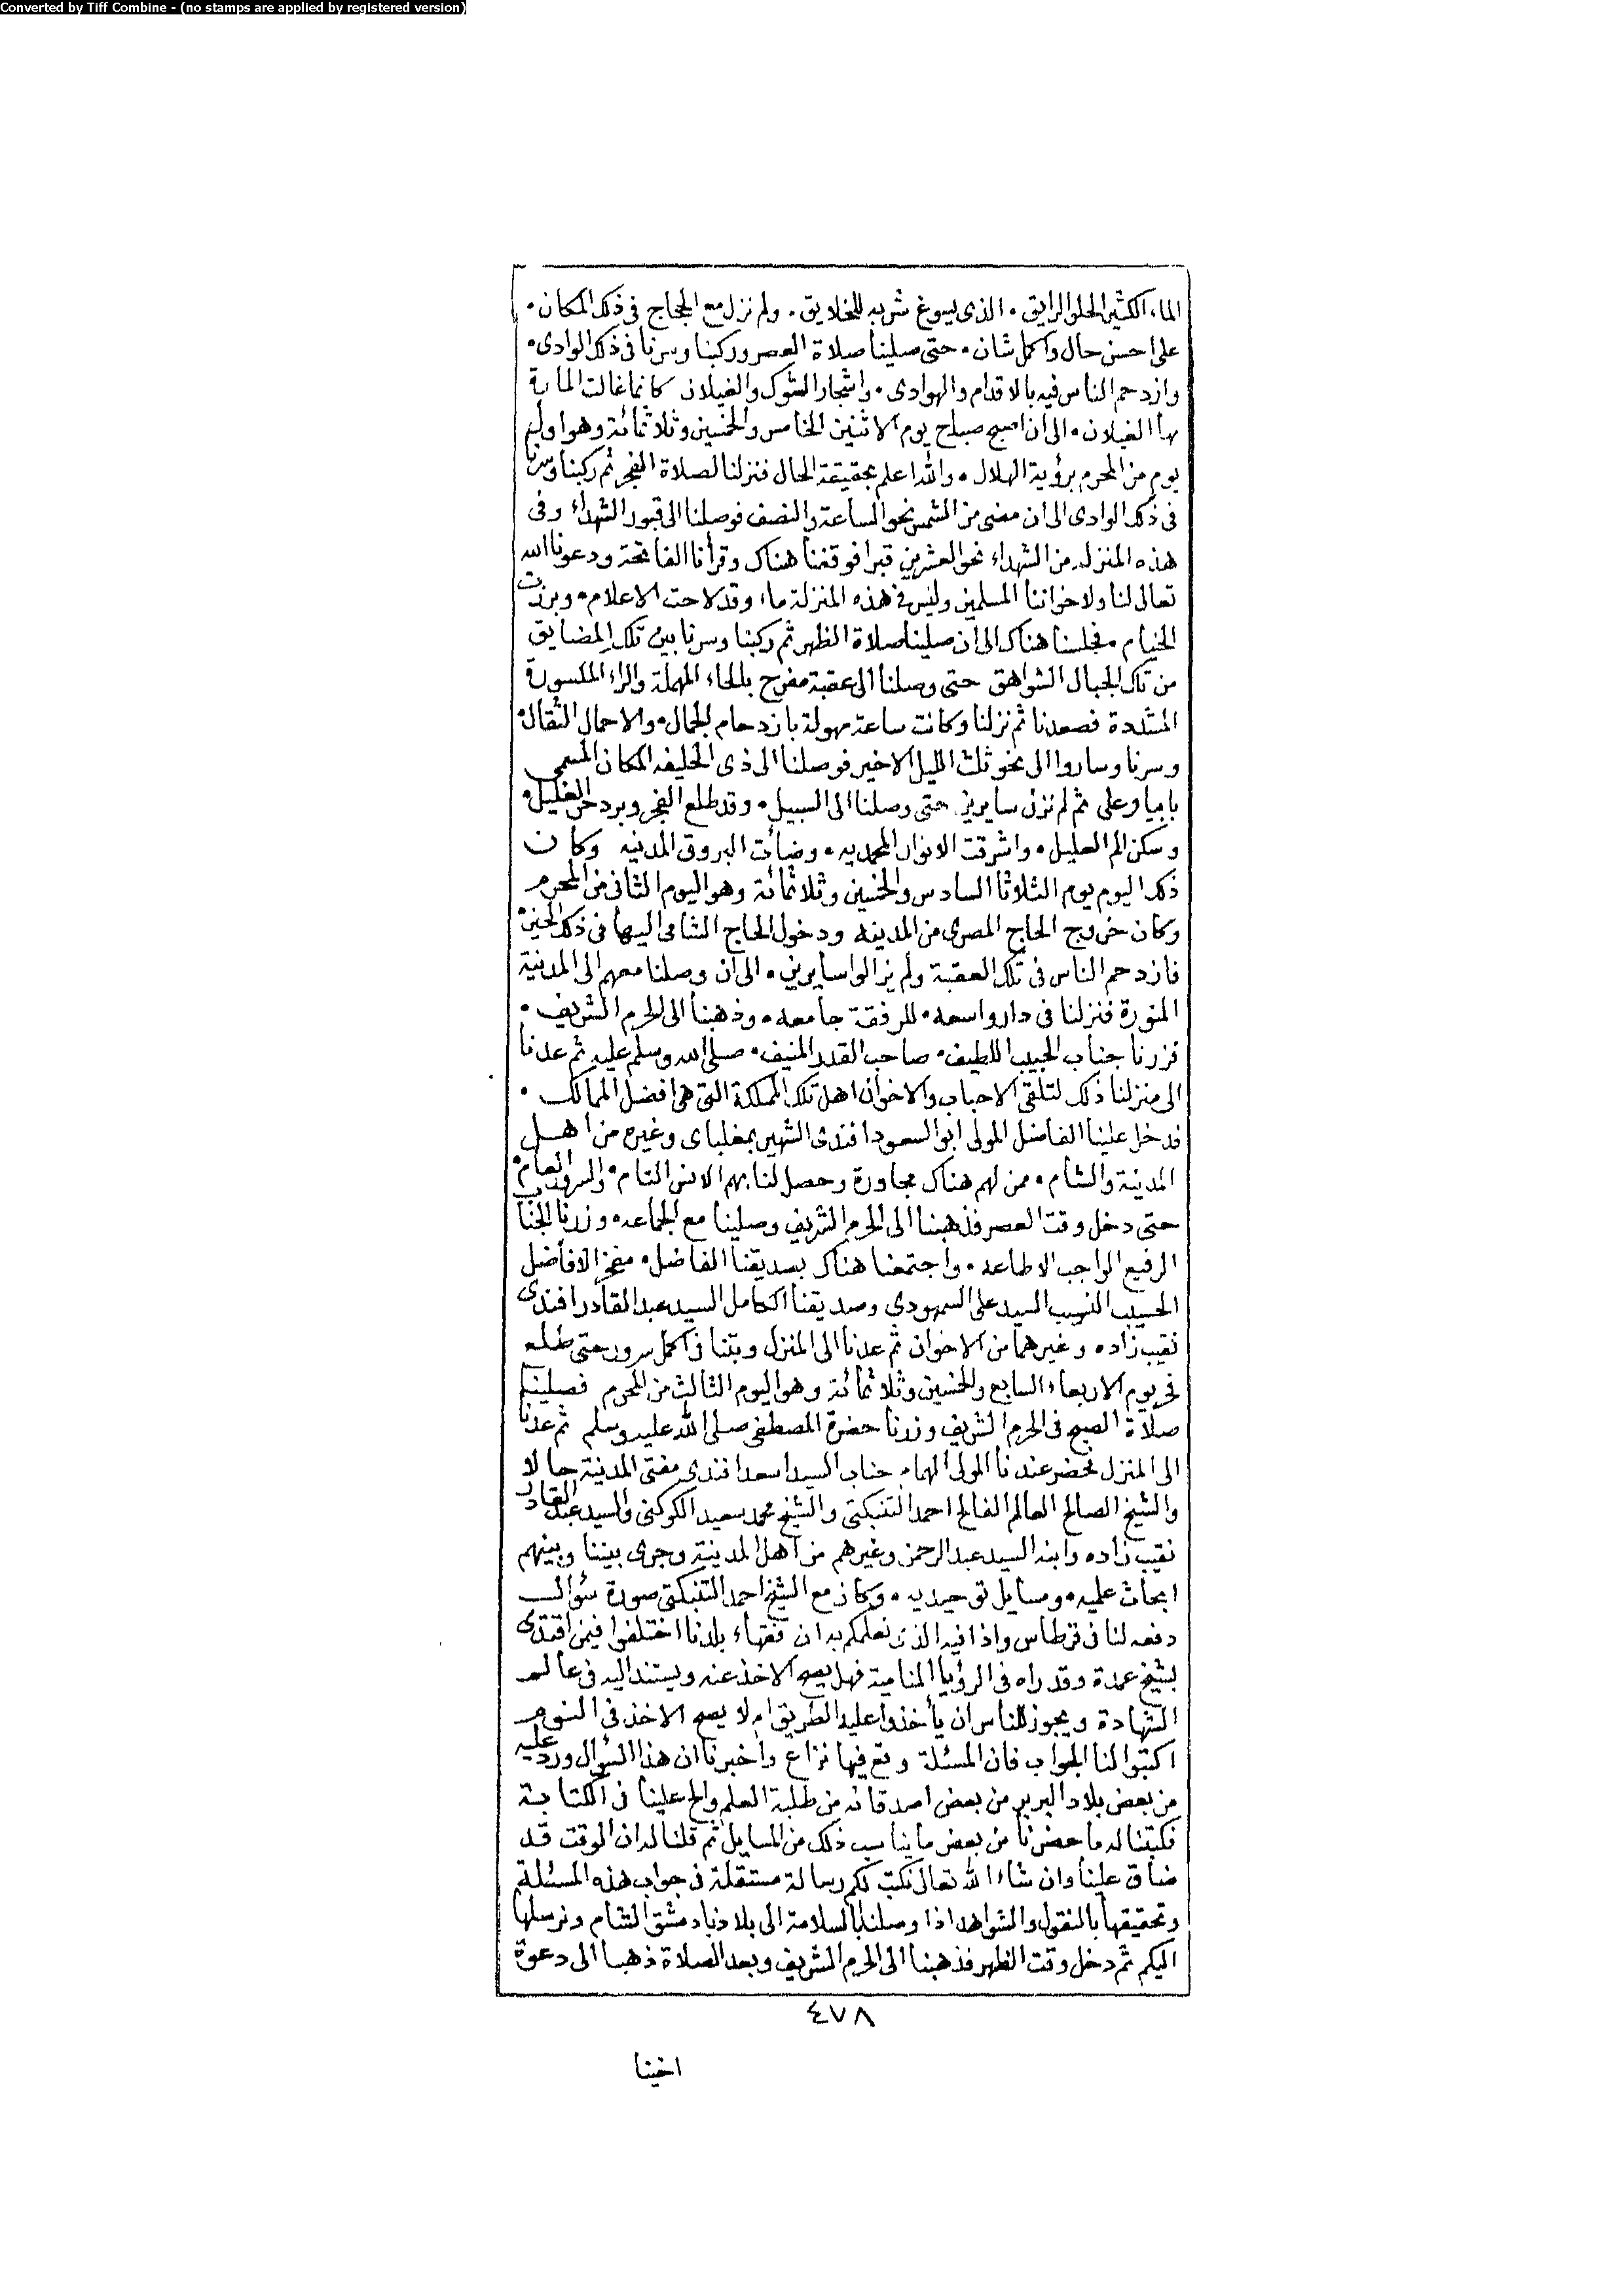 Converted by Tiff Combine - (no stamps are applied by registered version)
الماء الكثير الحلو الرايق • الذى يسوغ شربه للخلايق • ولم نزل مع الحجاج فى ذلك المكان •
على احسن حال واكمل شان • حتى صلينا صلاة العصر وركبنا وسرنا فى ذلك الوادى •
وازدحم الناس فيه بالاقدام والهوادى • واشجار الشوك والغيلان كانما غالت المارة
بها الغيلان • الى ان اصبح صباح يوم الاثنين الخامس والخمسين وثلاثمائة وهو اول
يوم من المحرم برؤية الهلال • والله اعلم بحقيقة الحال فنزلنا لصلاة الفجر ثم ركبنا وسرنا
فى ذلك الوادى الى ان مضى من الشمس نحو الساعة والنصف فوصلنا الى قبور الشهداء وفى
هذه المنزلة من الشهداء نحو العشرين قبرا فوقفنا هناك وقرأنا الفاتحة ودعونا الله
تعالى لنا ولاخواننا المسلمين وليس فى هذه المنزلة ماء وقد لاحت الاعلام • وبرزت
الخيام • فجلسنا هناك الى ان صلينا صلاة الظهر ثم ركبنا وسرنا بين تلك المضايق
من تلك الجبال الشواهق حتى وصلنا الى عقبة مفرح بالحاء المهملة والراء المكسورة
المشددة فصعدنا ثم نزلنا وكانت ساعة مهولة بازدحام الجمال • والاحمال الثقال •
وسرنا وساروا الى نحو ثلث الليل الاخير فوصلنا الى ذى الحليفه المكان المسمى
بابيار على ثم لم نزل سايرين حتى وصلنا الى السبيل • وقد طلع الفجر وبرد حر الغليل •
وسكن الم العليل • واشرقت الانوار المحمديه • وضائت البروق المدنيه وكان
ذلك اليوم يوم الثلاثا السادس والخمسين وثلاثمائة وهو اليوم الثانى من المحرم
وكان خروج الحاج المصرى من المدينه ودخول الحاج الشامى اليها فى ذلك الحين •
فازدحم الناس فى تلك العقبة ولم يزالوا سايرين • الى ان وصلنا معهم الى المدينة
المنورة فنزلنا فى دار واسعه • للرفقة جامعه • وذهبنا الى الحرم الشريف •
فزرنا جناب الحبيب اللطيف • صاحب القدر المنيف • صلى الله وسلم عليه ثم عدنا
الى منزلنا ذلك لتلقى الاحباب والاخوان اهل تلك المملكة التى هى افضل الممالك •
فدخل علينا الفاضل المولى ابو السعود افندى الشهير بمغلباى وغيره من اهل
المدينة والشام • ممن لهم هناك مجاورة وحصل لنا بهم الانس التام • والسرور العام •
حتى دخل وقت العصر فذهبنا الى الحرم الشريف وصلينا مع الجماعه • وزرنا الجناب
الرفيع الواجب الاطاعه • واجتمعنا هناك بصديقنا الفاضل • مفخر الافاضل
الحسيب النسيب السيد على السمهودي وصديقنا الكامل السيد عبد القادر افندى
نقيب زاده وغيرهما من الاخوان ثم عدنا الى المنزل وبتنا فى اكمل سرور حتى طلع
فجر يوم الاربعاء السابع والخمسين وثلاثمائة وهو اليوم الثالث من المحرم فصلينا
صلاة الصبح فى الحرم الشريف وزرنا حضرة المصطفى صلى الله عليه وسلم ثم عدنا
الى المنزل فحضر عندنا المولى الهمام جناب السيد اسعد افندى مفتى المدينة حالا
والشيخ الصالح العالم الفالح احمد التنبكتى والشيخ محمد سعيد الكوكنى والسيد عبد القادر
نقيب زاده وابنه السيد عبد الرحمن وغيرهم من اهل المدينة وجرى بيننا وبينهم
ابحاث علميه • ومسايل توحيديه • وكان مع الشيخ احمد التنبكتى صورة سؤال
دفعه لنا فى قرطاس واذا فيه الذى نعلمكم به ان فقهاء بلادنا اختلفوا فيمن اقتدى
بشيخ عمدة وقد راه فى الرؤيا المنامية فهل يصح الاخذ عنه ويستند اليه فى عالم
الشهادة ويجوز للناس ان يأخذوا عليه الطريق ام لا يصح الاخذ فى النوم
اكتبوا لنا الجواب فان المسئلة وقع فيها نزاع واخبرنا ان هذا السؤال ورد عليه
من بعض بلاد البربر من بعض اصدقائه من طلبة العلم والح علينا فى الكتابة
فكتبنا له ما حضرنا من بعض ما يناسب ذلك من المسايل ثم قلنا له ان الوقت قد
ضاق علينا وان شاء الله تعالى نكتب لكم رسالة مستقلة فى جواب هذه المسئلة
وتحقيقها بالنقول والشواهد اذا وصلنا بالسلامة الى بلادنا دمشق الشام ونرسلها
اليكم ثم دخل وقت الظهر فذهبنا الى الحرم الشريف وبعد الصلاة ذهبنا الى دعوة
٤٧٨
اخينا